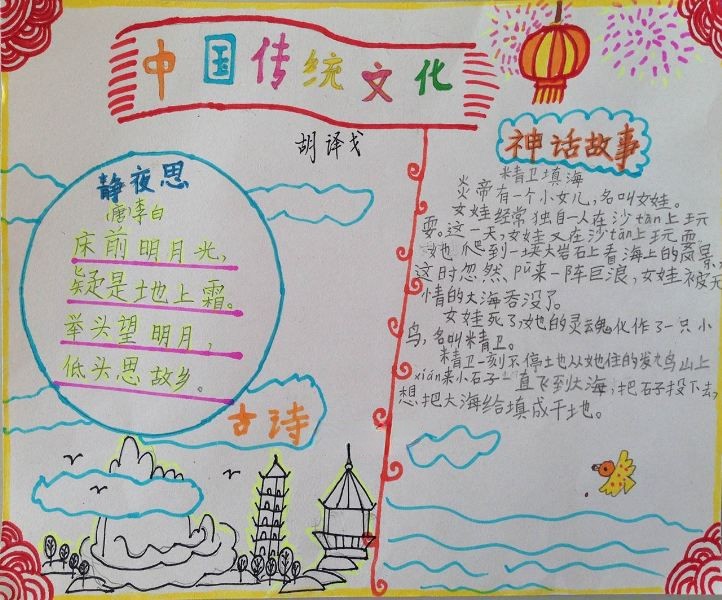 中国传统文化
胡译戈
静夜思
唐李白
床前明月光，
疑是地上霜。
举头望明月，
低头思故乡。
古诗
神话故事
精卫填海
炎帝有一个小女儿，名叫女娃。
女娃经常独自一人在沙tān上玩
耍。这一天，女娃又在沙tān上玩耍，
她爬到一块大岩石上看海上的风景，
这时忽然pū来一阵巨浪，女娃被无
情的大海吞没了。
女娃死了，她的灵魂化作了一只小
鸟，名叫精卫。
精卫一刻不停地从她住的发九鸟山上
xián来小石子一直飞到大海，把石子投下去，
想把大海给填成干地。